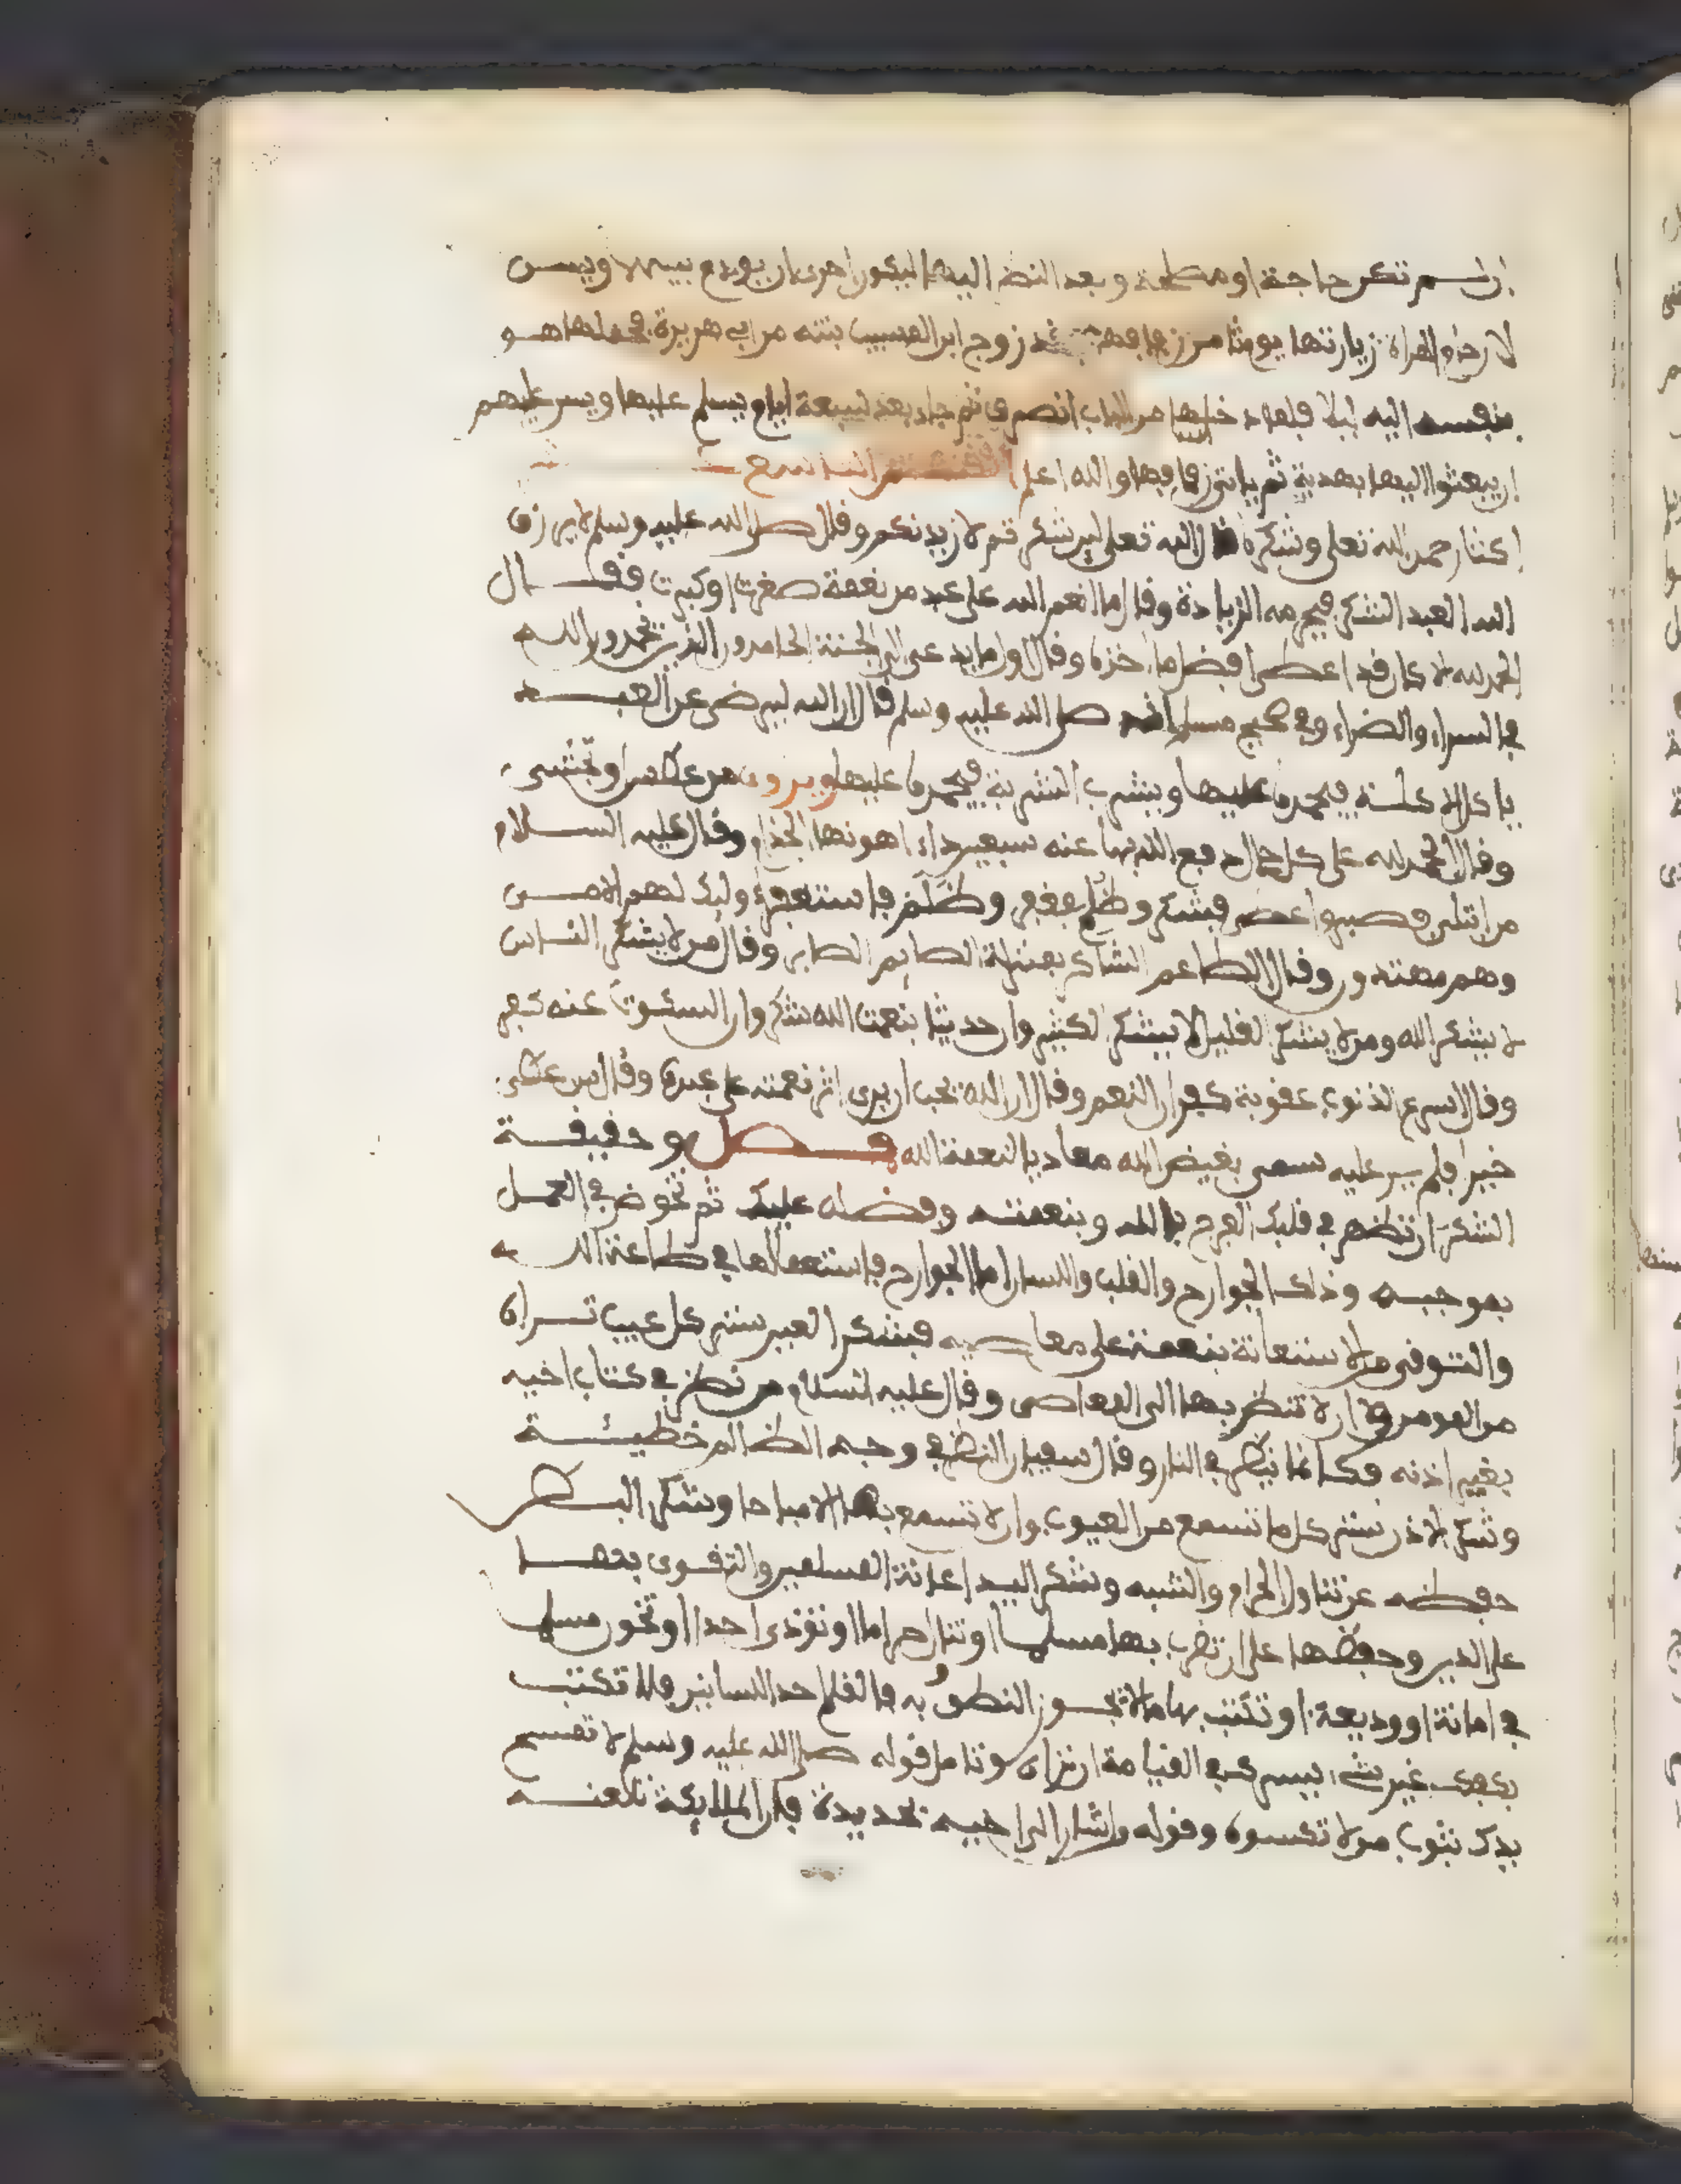 ان لم تكن حاجة او مطلمة وبعد النظر اليها ليكون احرى ان يودم بينهما ويسن
لاخوات المراة زيارتها يوما من زفافها زوج ابن المسيب بنته من ابي هريرة فحملها هو
بنفسه اليه ليلا فلما دخلها من الباب انصرف ثم جاء بعد لسبعة ايام يسلم عليها ويسن عليهم
ان يبعثوا اليها بهدية ثم ياتي زفافها والله اعلم
كتاب حمد الله تعلى وشكره قال الله تعلى لين شكرتم لازيدنكم وقال صلى الله عليه وسلم لا يرزق
الله العبد الشكر فيحرمه الزيادة وقال ما انعم الله على عبد من نعمة صغرت او كبرت فقال
الحمد لله الا كان قد اعطى افضل ما اخذه وقال اول ما يدعى الى الجنة الحامدون الذين يحمدون الله
في السراء والضراء وفي صحيح مسلم انه صلى الله عليه وسلم قال ان الله ليرضى عن العبد
ياكل الاكلة فيحمده عليها ويشرب الشربة فيحمده عليها ويروى من عطس او تجشى
وقال الحمد لله على كل حال دفع الله بها عنه سبعين داء اهونها الجذام وقال عليه السلام
من ابتلي فصبر واعطى فشكر وظلم فغفر وظلم فاستغفر اوليك لهم الامن
وهم مهتدون وقال الطاعم الشاكر بمنزلة الصايم الصابر وقال من لا يشكر الناس
لا يشكر الله ومن لا يشكر القليل لا يشكر الكثير وان حديثا بنعمت الله شكر وان السكوت عنه كفر
وقال اسرع الذنوب عقوبة كفران النعم وقال ان الله يحب ان يرى اثر نعمته على عبده وقال من اعطى
خيرا فلم ير عليه سمي بغيض الله معاديا لنعمة الله فصل وحقيقة
الشكر ان تظهر في قلبك الفرح بالله وبنعمته وفضله عليك ثم تخوض في العمل
بموجبه وذلك الجوارح والقلب واللسان اما الجوارح فاستعمالها في طاعة الله
والتوقي من الاستعانة بنعمته على معاصيه فشكر العين ستر كل عيب تراه
من المومن وان لا تنظر بها الى المعاصي وقال عليه السلام من نظر في كتاب اخيه
بغير اذنه فكانما ينظر في النار وقال سفيان النظر في وجه الظالم خطيئة
وشكر الاذن ستر كل ما تسمع من العيوب وان لا تسمع بها الا مباحا وشكر البطن
حفظه عن تناول الحرام والشبه وشكر اليد اعانة المسلمين والتقوى بها
على الدين وحفظها على ان تضرب بها مسلما او تنال حراما او تؤذي احدا او تخون مسلما
في امانة او وديعة او تكتب بها ما لا يجوز النطق به فالقلم احد اللسانين فلا تكتب
بكفك غير شيء يسرك في القيامة ان تراه وتامل قوله صلى الله عليه وسلم لا تمسح
يدك بثوب من لا تكسوه وقوله من اشار الى اخيه بحديدة فان الملايكة تلعنه